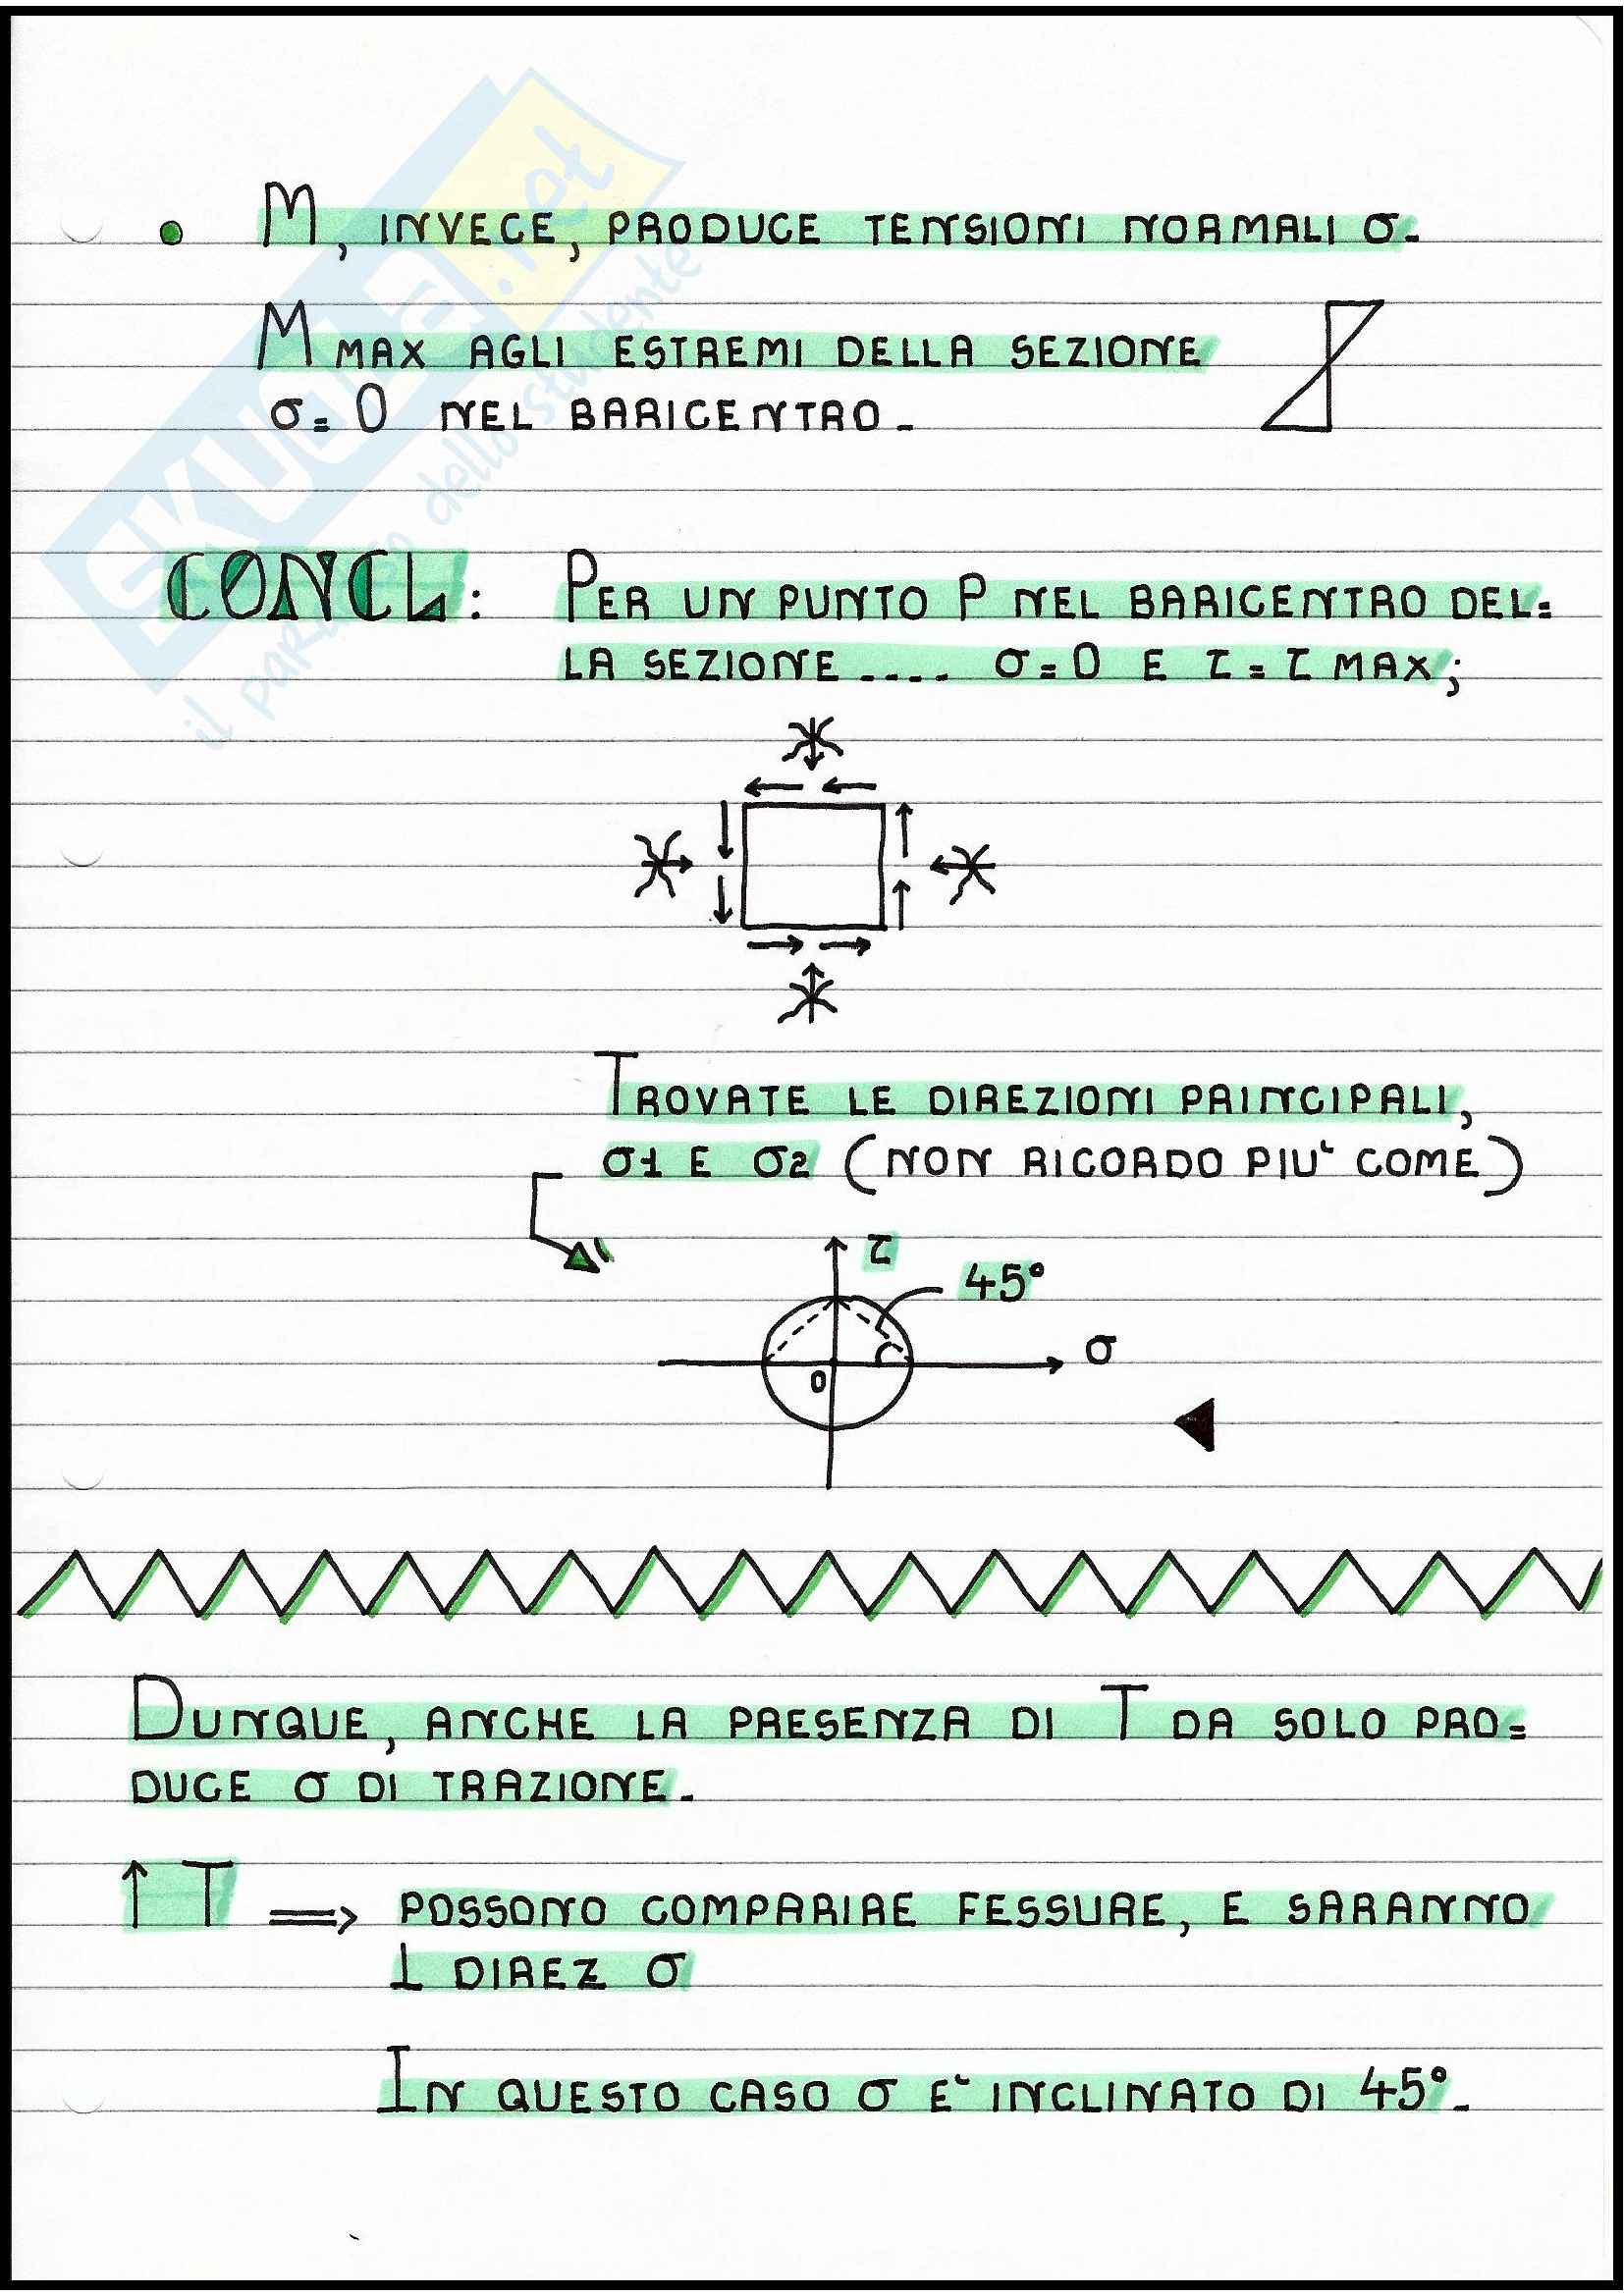 SKUOLA.net
il paradiso dello studente
M, INVECE, PRODUCE TENSIONI NORMALI σ.
M MAX AGLI ESTREMI DELLA SEZIONE
σ=0 NEL BARICENTRO.
CONCL: PER UN PUNTO P NEL BARICENTRO DEL=
LA SEZIONE .... σ=0 E τ=τ MAX;
TROVATE LE DIREZIONI PRINCIPALI,
σ1 E σ2 (NON RICORDO PIU' COME)
τ
45°
σ
0
DUNQUE, ANCHE LA PRESENZA DI T DA SOLO PRO=
DUCE σ DI TRAZIONE.
↑ T ⇒ POSSONO COMPARIRE FESSURE, E SARANNO
⊥ DIREZ σ
IN QUESTO CASO σ E' INCLINATO DI 45°.